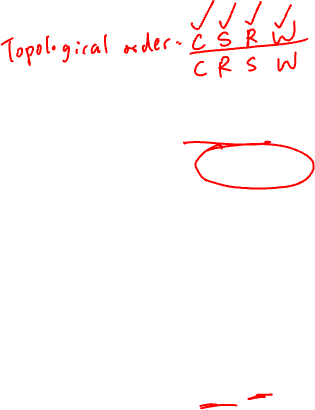 Topological order - C S R W
C R S W